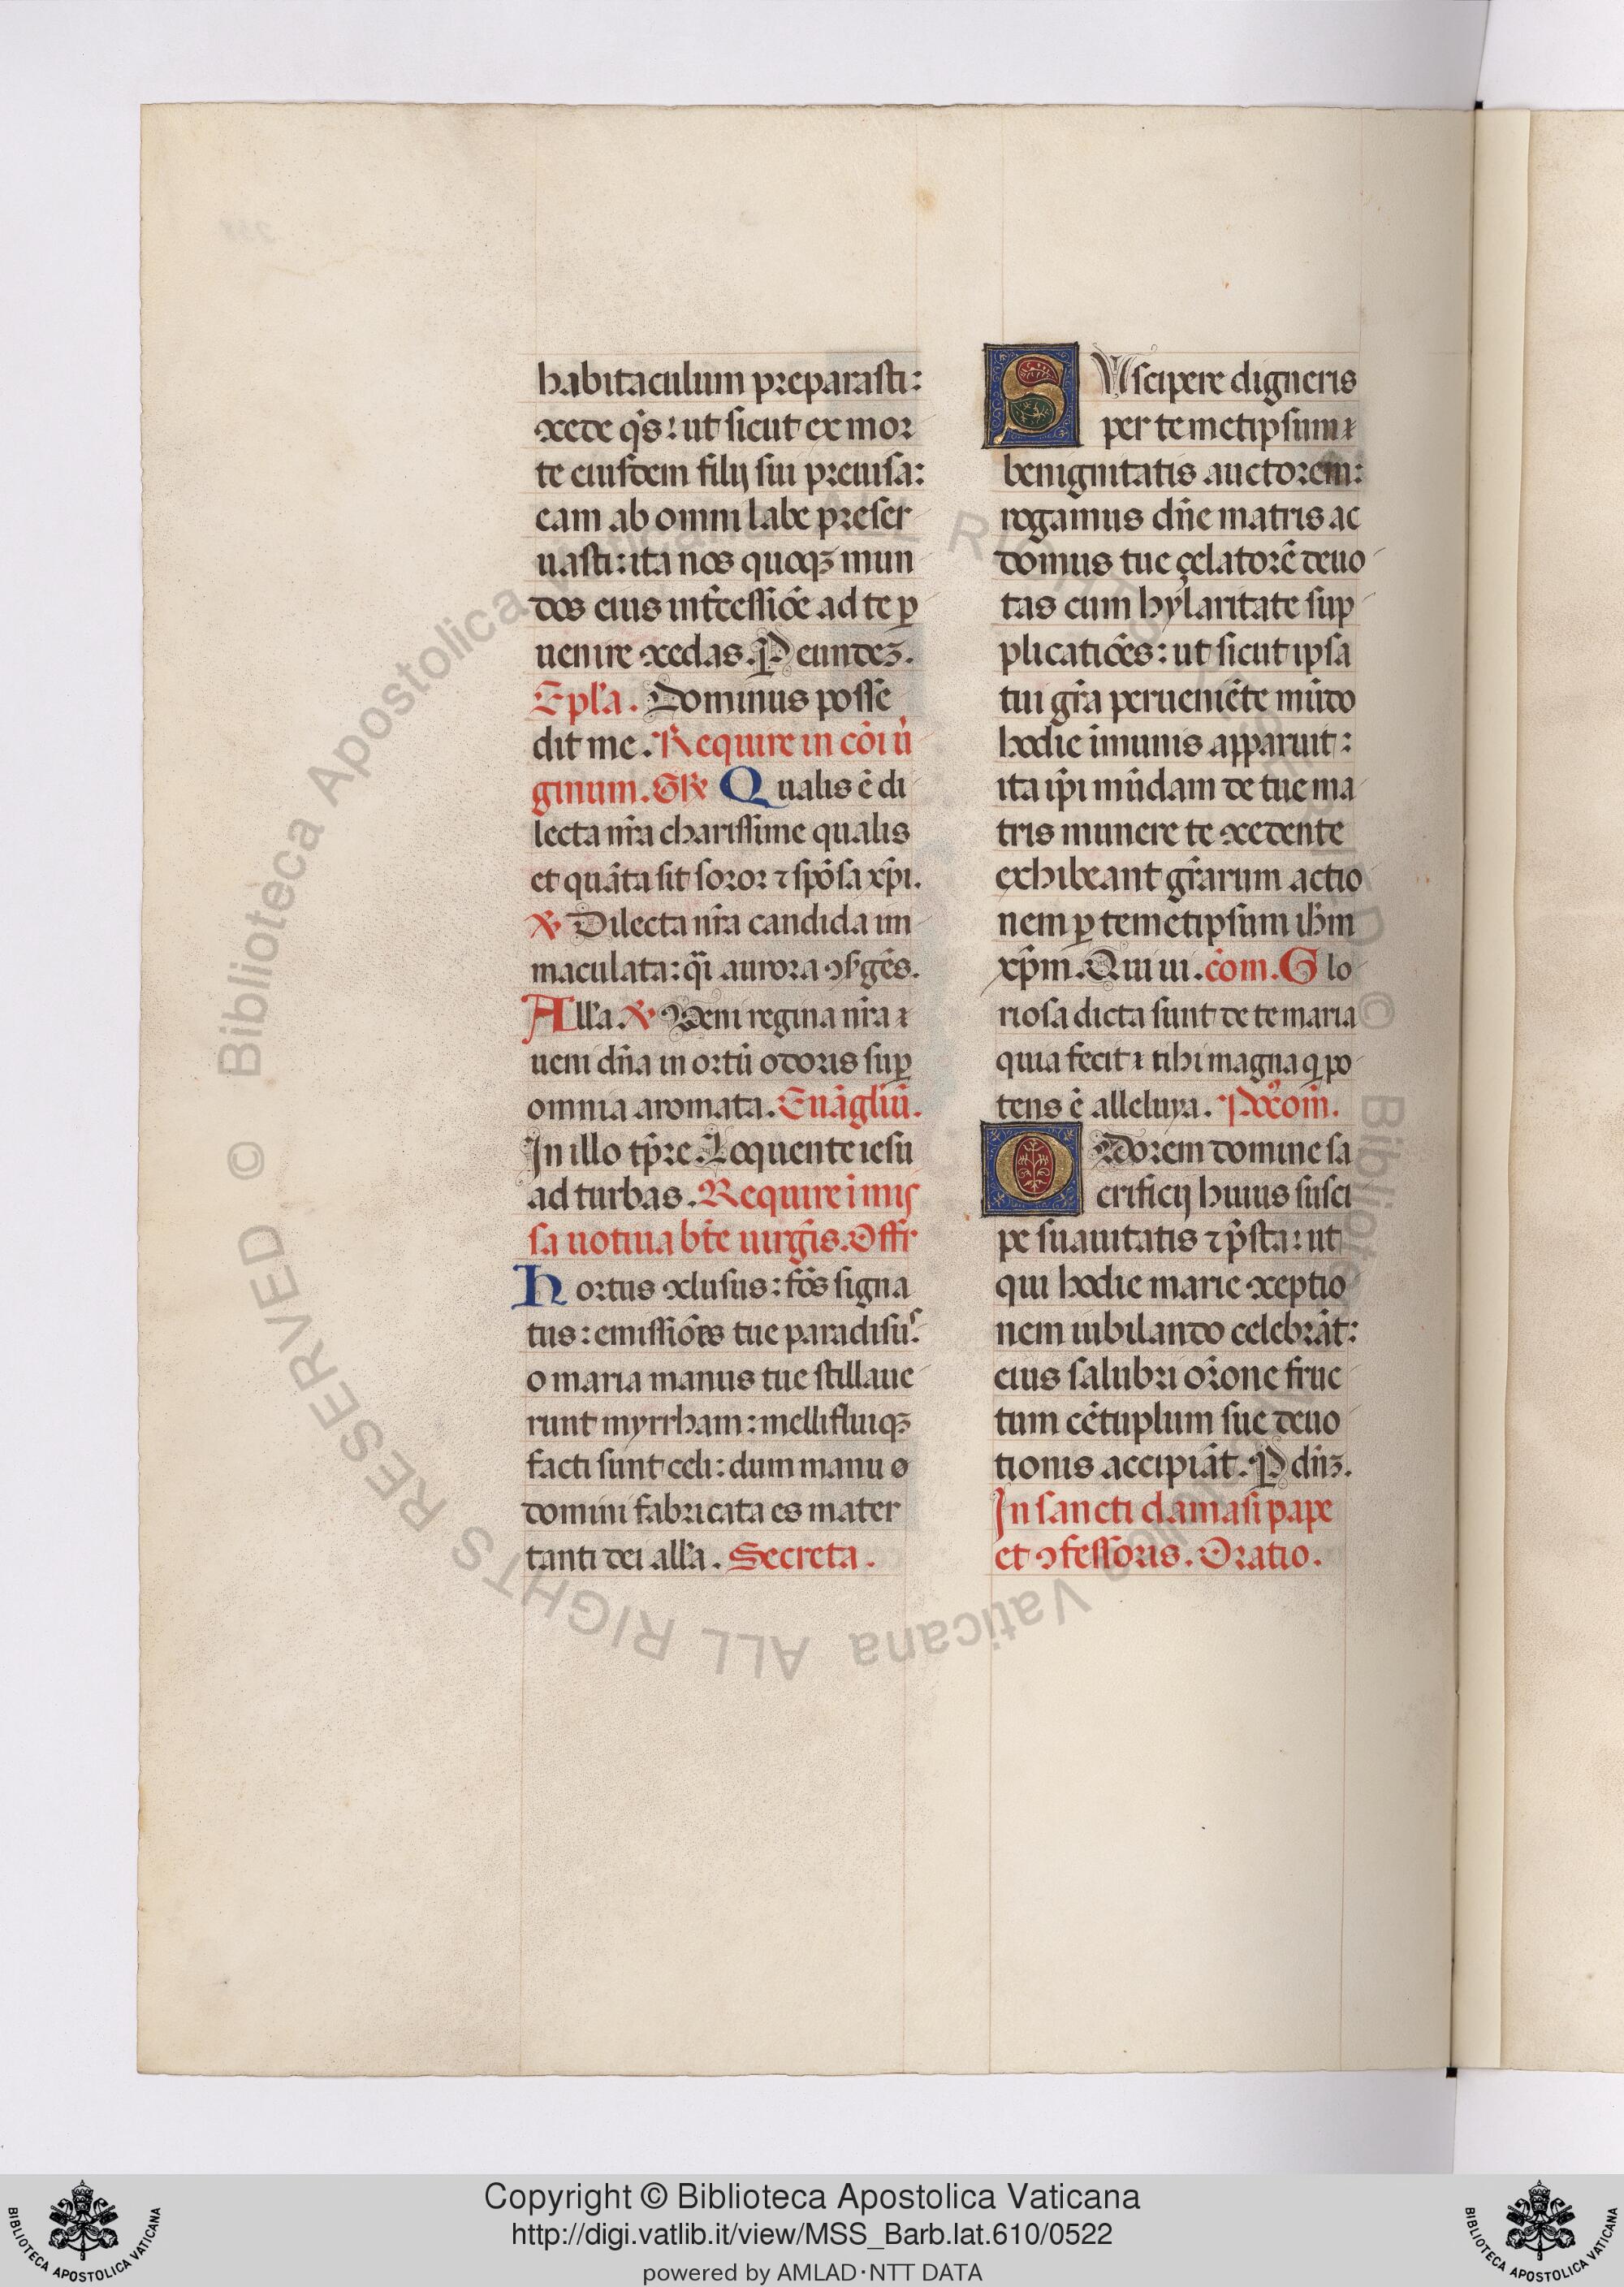 habitaculum preparasti:
ꝯcede q̄s: ut sicut ex mor
te eiusdem filij sui preuisa:
eam ab omni labe preser
uasti: ita nos quoqꝫ mun
dos eius intercessiōe ad te ꝑ
uenire ꝯcedas. P eundeꝫ.
Epl'a. Dominus posse
dit me. Require in cōi uir
ginum. Gr̄e Qualis ē di
lecta nr̄a charissime qualis
et quāta sit soror ⁊ spōsa xp̄i.
℣ Dilecta nr̄a candida im
maculata: q̄i aurora ꝯsurgēs.
All'a. ℣ Veni regina nr̄a
ueni dn̄a in ortū odoris suꝑ
omnia aromata. Euāgl'iū.
In illo tp̄re Loquente iesu
ad turbas. Require i mis
sa uotiua bt̄e uirgīs. Offr
Hortus ꝯclusus: fōs signa
tus: emissiōes tue paradisus.
o maria manus tue stillaue
runt myrrham: mellifluiqꝫ
facti sunt celi: dum manu
domini fabricata es mater
tanti dei all'a. Secreta.
SUscipere digneris
per temetipsum
benignitatis auctorem:
rogamus dn̄e matris ac
domus tue çelatorē deuo
tas cum hylaritate sup
plicatiōes: ut sicut ipsa
tui gr̄a perueniēte mūdo
hodie īmunis apparuit:
ita ip̄i mūdam de tue ma
tris munere te ꝯcedente
exhibeant gr̄arum actio
nem ꝑ temetipsum ih̄m
xp̄m. Qui ui. cōm. Glo
riosa dicta sunt de te maria
quia fecit tibi magna q po
tens ē alleluya. Poc̄om̄.
Odorem domine sa
crificij huius susci
pe suauitatis ⁊ p̄sta: ut
qui hodie marie ꝯceptio
nem iubilando celebrāt:
eius salubri or̄one fruc
tum cētuplum sue deuo
tionis accipiāt. P dn̄ꝫ.
In sancti damasi pape
et ꝯfessoris. Oratio.
© Biblioteca Apostolica Vaticana ALL RIGHTS RESERVED
Copyright © Biblioteca Apostolica Vaticana
http://digi.vatlib.it/view/MSS_Barb.lat.610/0522
powered by AMLAD·NTT DATA
BIBLIOTECA APOSTOLICA VATICANA
BIBLIOTECA APOSTOLICA VATICANA